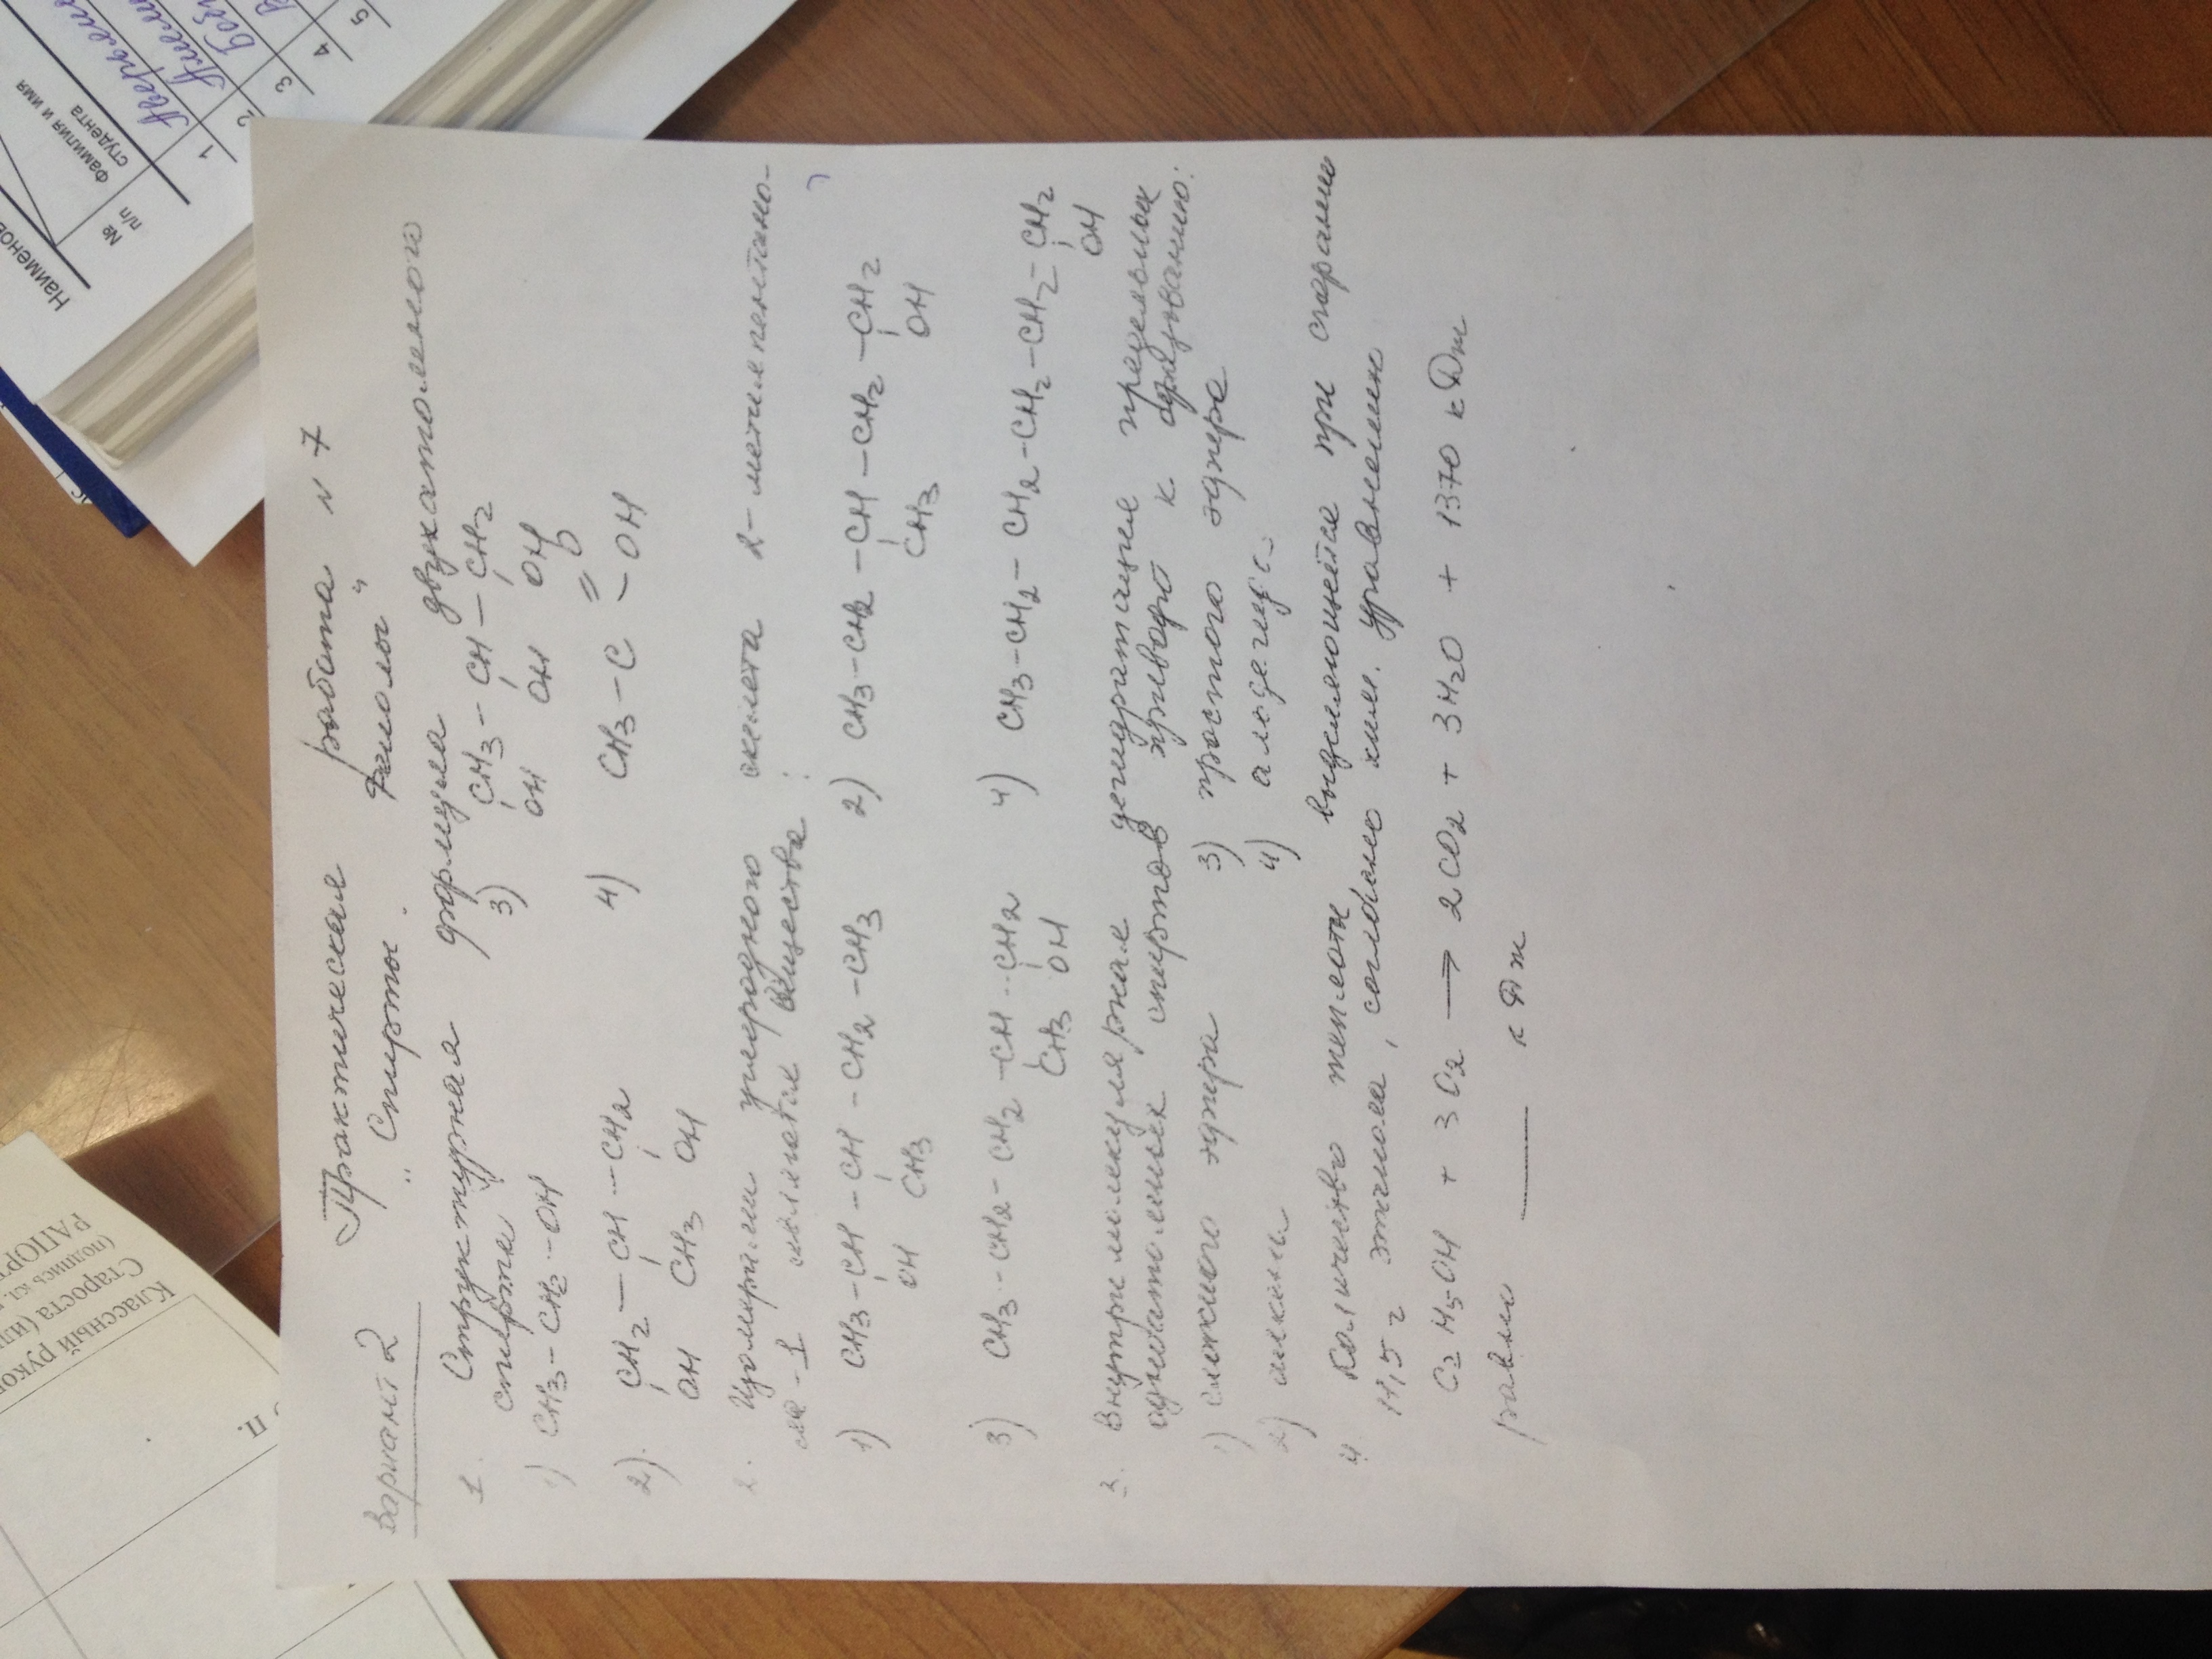 Практическая работа N 7
Вариант 2 "Спирты. Фенолы"
1. Структурная формула двухатомного
спирта
1) CH3 – CH2 – OH
3) CH3 – CH – CH2
OH OH OH
2). CH2 – CH – CH2
OH CH3 OH
4) CH3 – C = O
– OH
2. Изомерами углеродного скелета 2-метилпентано-
ла-1 является вещества:
1) CH3 – CH – CH – CH2 – CH3
OH CH3
2) CH3 – CH2 – CH – CH2 – CH2
CH3 OH
3) CH3 – CH2 – CH2 – CH – CH2
CH3 OH
4) CH3 – CH2 – CH2 – CH2 – CH2 – CH2
OH
3. Внутримолекулярная дегидратация предельных
одноатомных спиртов приводит к образованию:
1) сложного эфира
3) простого эфира
2) алкена
4)
4. Количество теплоты выделяющейся при сгорании
11,5 г этанола, согласно хим. уравнению
C2H5OH + 3O2 → 2CO2 + 3H2O + 1370 кДж
равно ____ кДж
Наименов
№ п/п
Фамилия и имя студента
1
2
3
4
5
Классный руков
Староста (или
(подпись кл.
РАПОРТ
п.